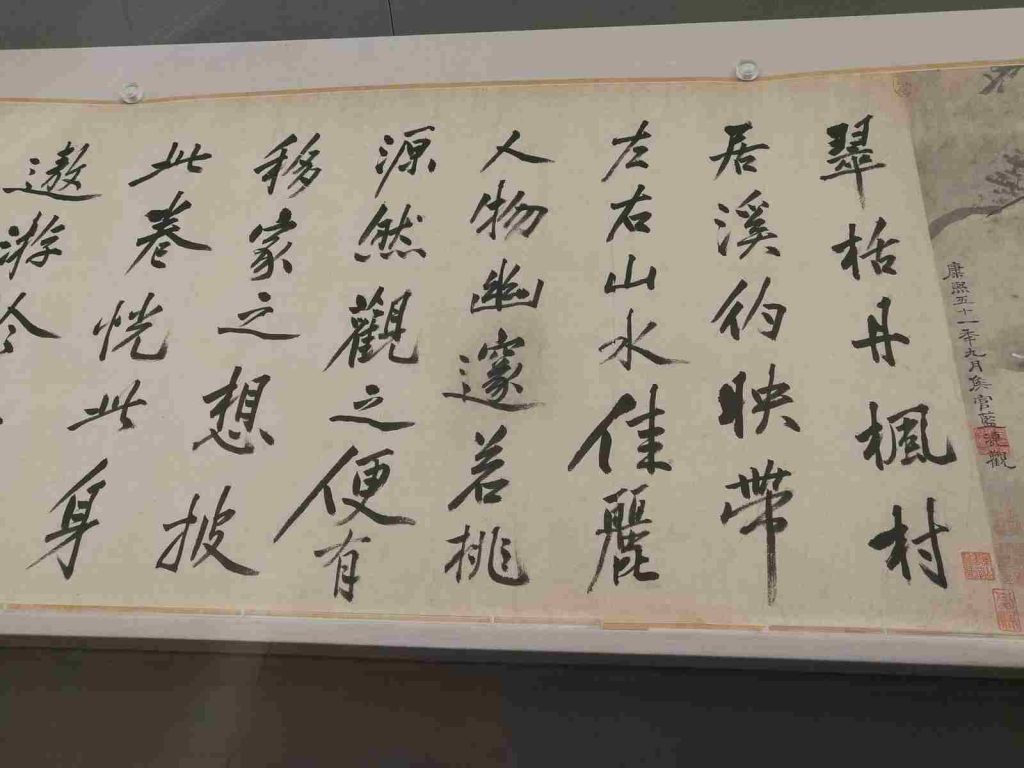 康熙五十一年九月侯官藍漣觀
翠栝丹楓村
居溪彴映帶
左右山水佳麗
人物幽邃若桃
源然觀之便有
移家之想披
此卷恍此身
遨游